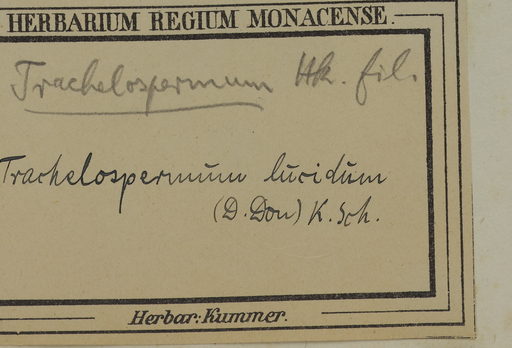 HERBARIUM REGIUM MONACENSE.
Trachelospermum Hk. fil.
Trachelospermum lucidum
(D. Don) K. Sch.
Herbar: Kummer.